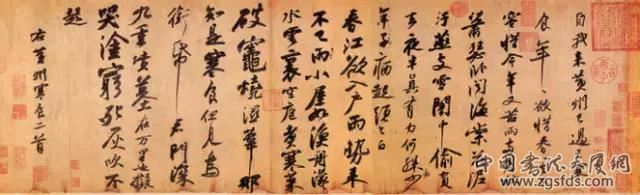 自我來黃州已過三寒
食年々欲惜春春去不
容惜今年又苦雨兩月秋
蕭瑟臥聞海棠花泥
汙燕支雪闇中偷負
去夜半真有力何殊少
年子病起頭已白
春江欲入戶雨勢來
不已雨小屋如漁舟濛々
水雲裏空庖煮寒菜
破竈燒濕葦那
知是寒食但見烏
銜帋君門深
九重墳墓在萬里也擬
哭塗窮死灰吹不
起
右黃州寒食二首
中国书法